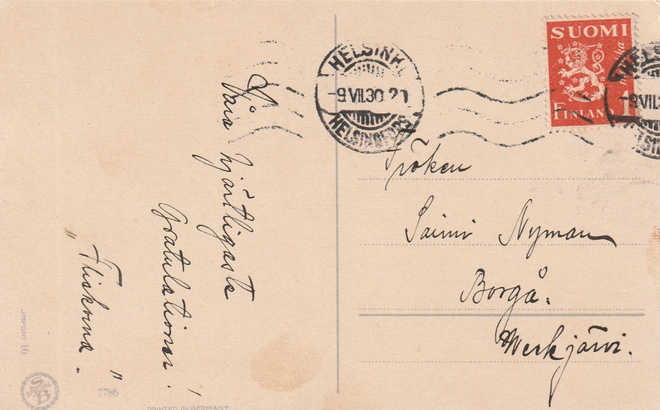 Våra hjärtligaste
Gratulationer!
„Flickorna"
HELSINKI
-9.VII.30.21
HELSINGFORS
SUOMI
FINLAND
1
Fröken
Saimi Nyman
Borgå.
Werkjärvi.
IMPORT 16
7786
PRINTED IN GERMANY